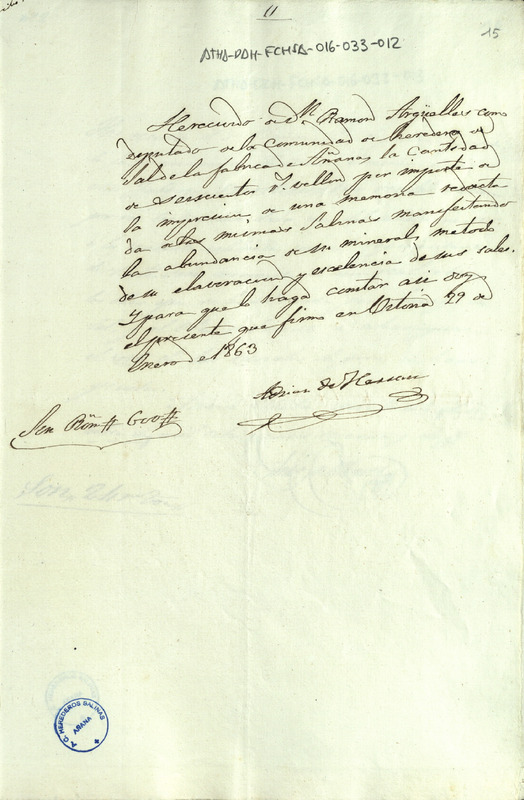 11
15
ATHA-DAH-FCHSA-016-033-012
He recivido de Dn. Ramon Argüelles como
deputado de la Comunidad de heredero de
Sal de la fabrica de Añanas la Cantidad
de seiscientos rs. vellon por importe de
la imprecion de una memoria redacta
da de las mismas Salinas manifestando
la abundancia de su mineral, metodo
de su elavoracion y escelencia de sus sales.
Y para que lo haga constar asi doy
el presente que firmo en Vitoria 29 de
Enero de 1863
Son Rs. vn # 600 #
A. G. HEREDEROS SALINAS
AÑANA